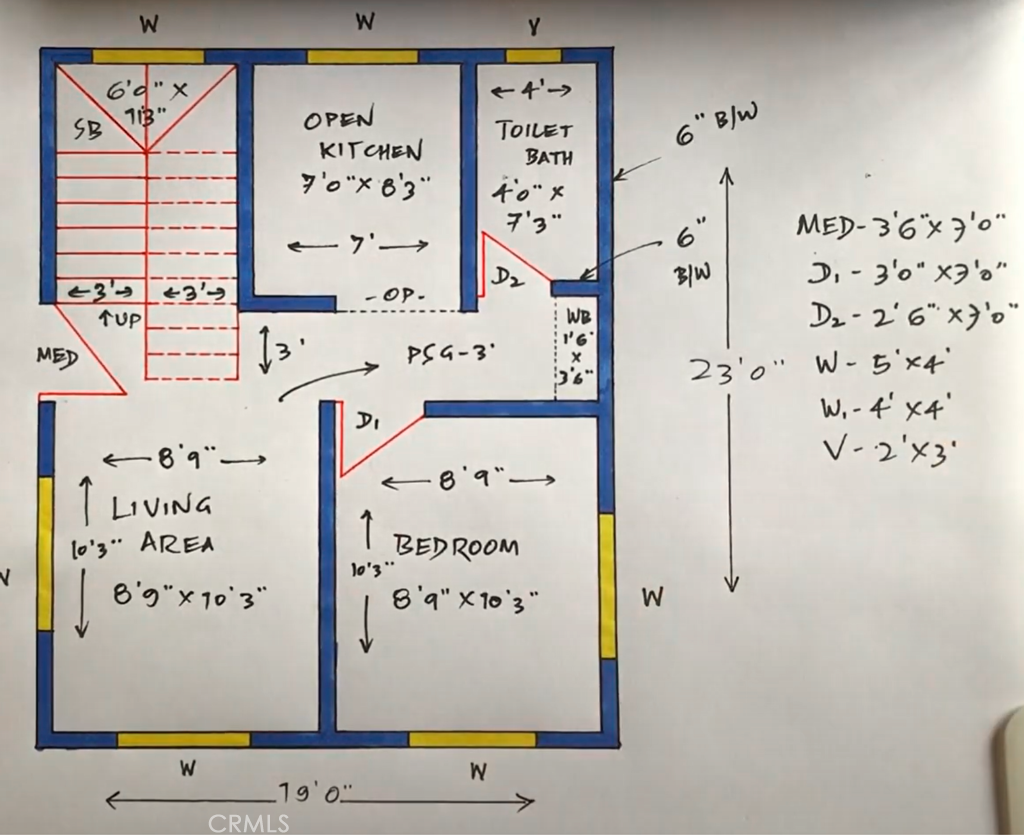 W
W
V
6'0" X
7'3"
SB
← 3' →
← 3' →
↑UP
MED
OPEN
KITCHEN
7'0" X 8'3"
← 7' →
- OP -
← 4' →
TOILET
BATH
4'0" X
7'3"
D2
WB
1'6"
X
3'6"
3'
PSG-3'
D1
← 8'9" →
LIVING
10'3" AREA
8'9" X 10'3"
← 8'9" →
BEDROOM
10'3"
8'9" X 10'3"
W
W
W
19'0"
6" B/W
6"
B/W
23'0"
MED - 3'6" X 7'0"
D1 - 3'0" X 7'0"
D2 - 2'6" X 7'0"
W - 5' X 4'
W1 - 4' X 4'
V - 2' X 3'
CRMLS